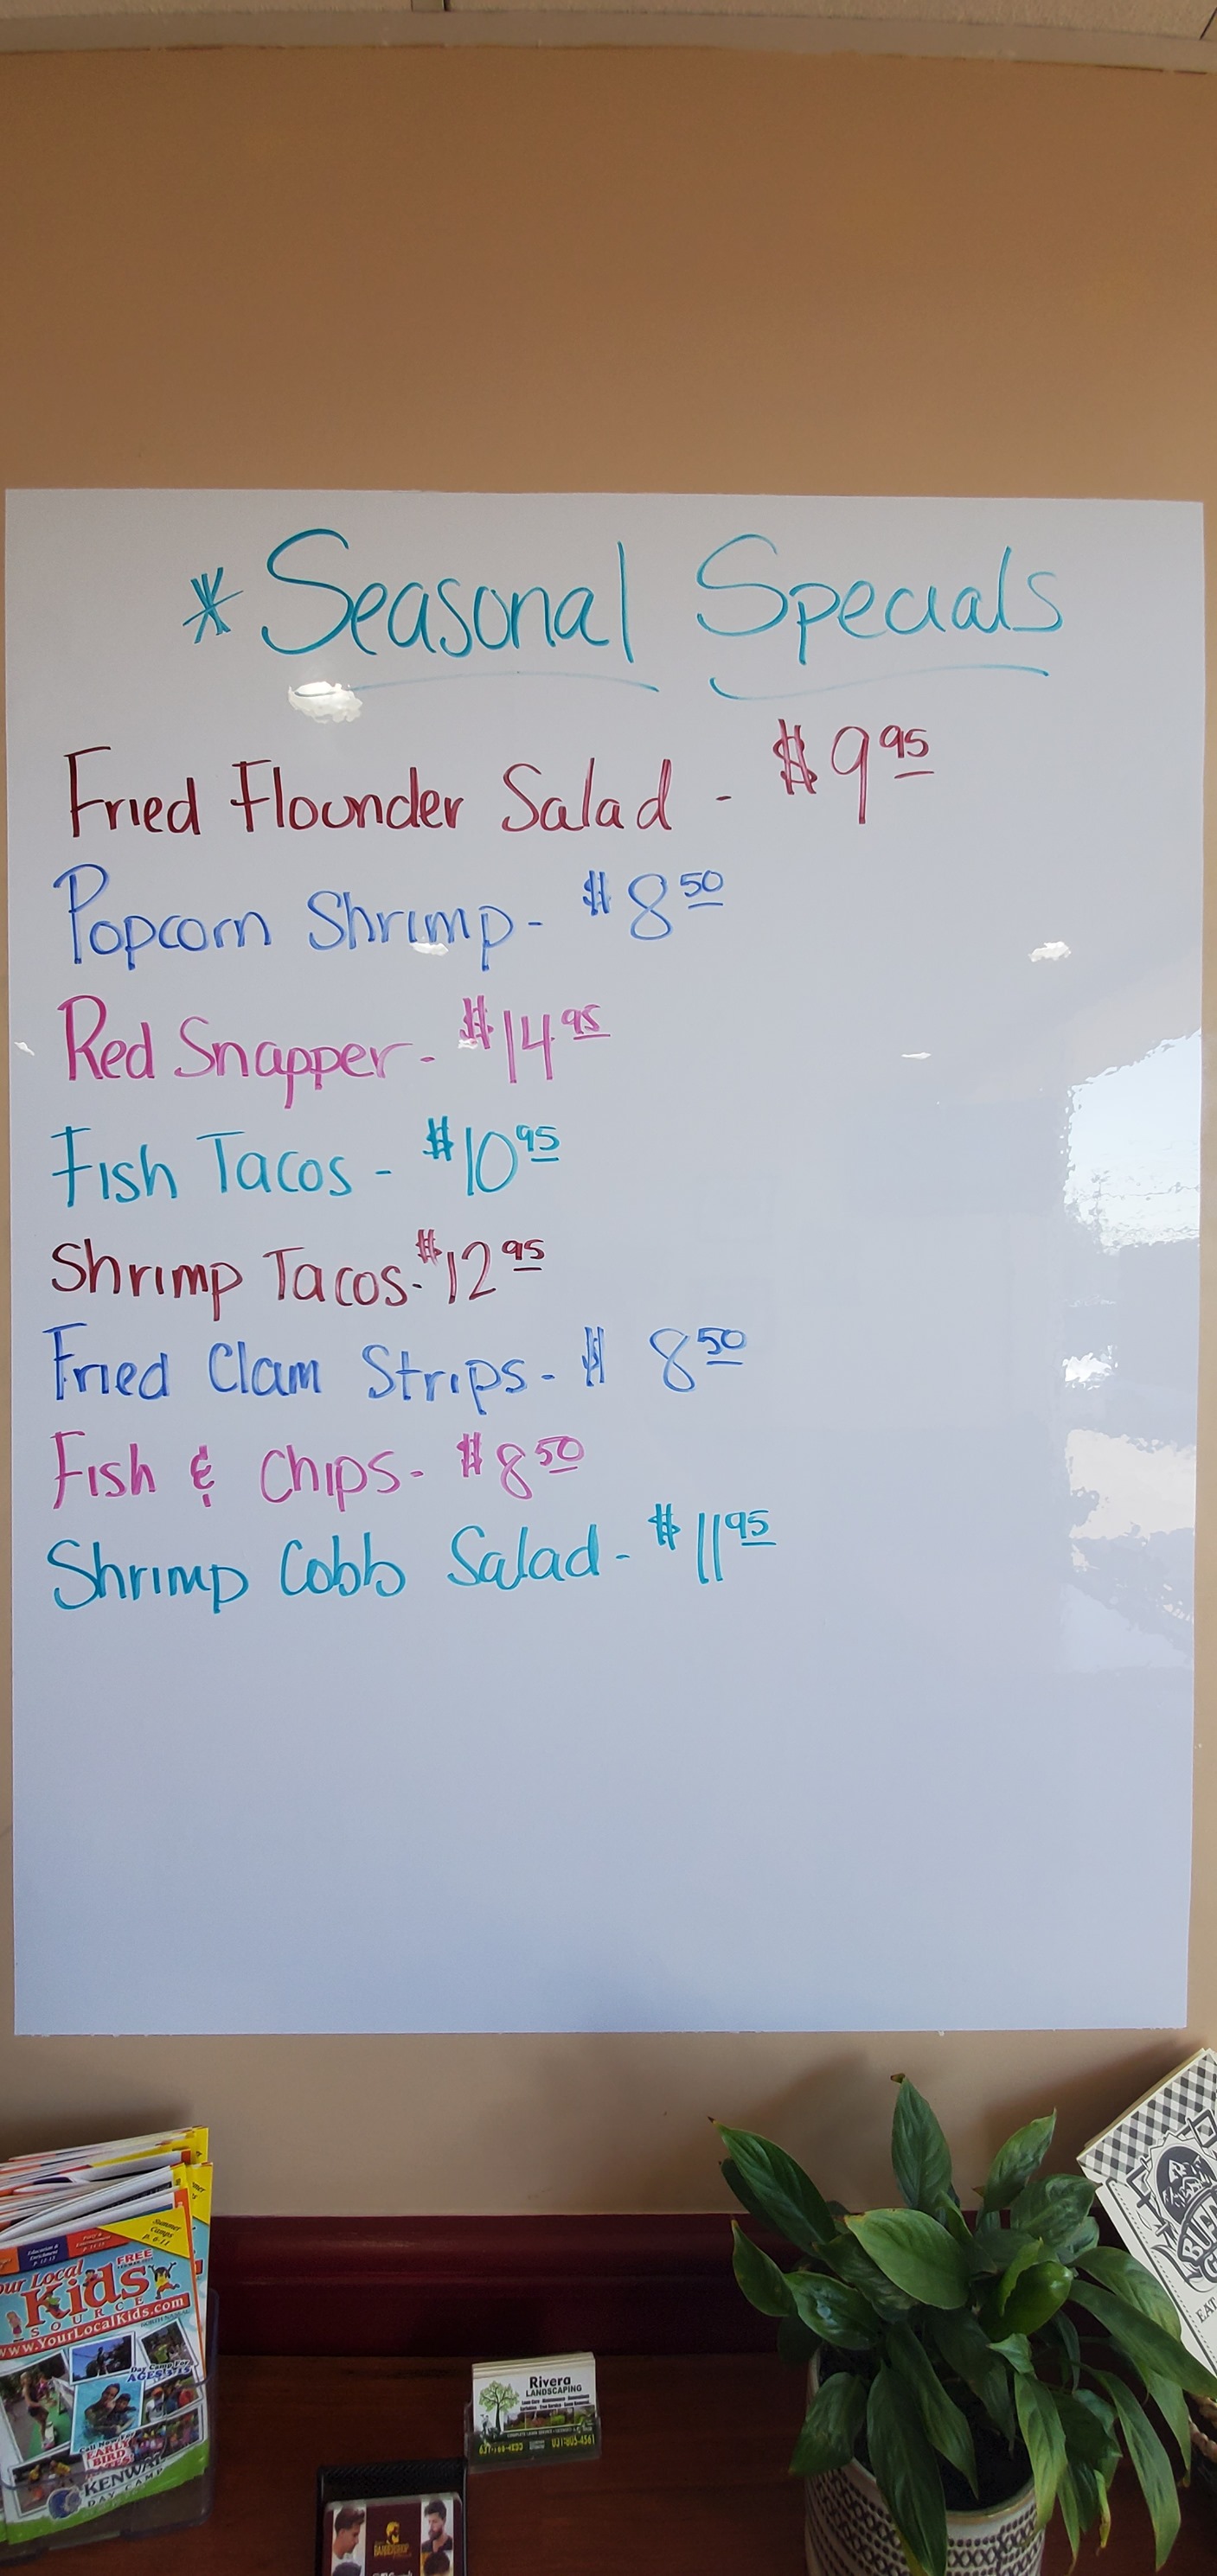 * Seasonal Specials
Fried Flounder Salad - $9 95
Popcorn Shrimp - $8 50
Red Snapper - $14 95
Fish Tacos - $10 95
Shrimp Tacos - $12 95
Fried Clam Strips - $ 8 50
Fish & Chips - $8 50
Shrimp Cobb Salad - $11 95
Summer
Camps
P. 6-11
FREE
our Local
Kids
SOURCE
www.YourLocalKids.com
Day Camp For
AGES 3-15
EARLY
BIRD
KENWAL
DAY CAMP
Rivera
LANDSCAPING
BARBERSHOP
EAT